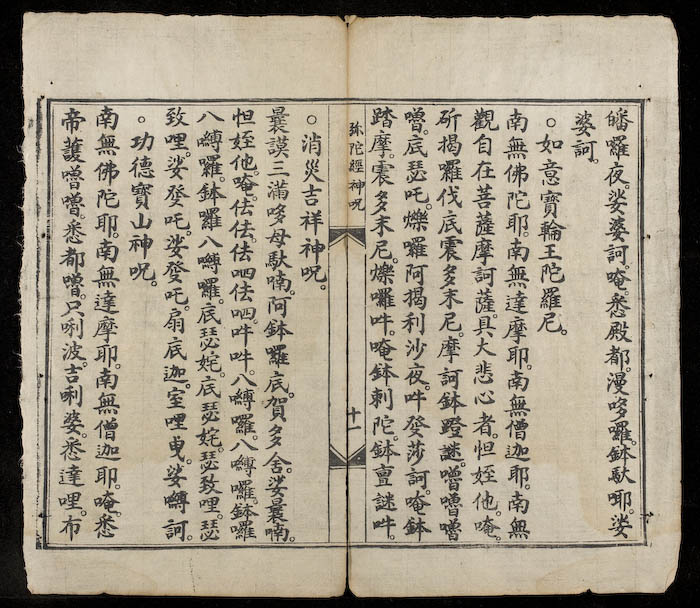 皤囉夜。娑婆訶。唵悉殿都。漫哆囉。鉢馱耶。娑
婆訶。
○如意寶輪王陀羅尼。
南無佛陀耶。南無達摩耶。南無僧迦耶。南無
觀自在菩薩摩訶薩。具大悲心者。怛姪他。唵。
斫揭囉伐底震多末尼。摩訶鉢蹬謎。嚕嚕嚕
嚕。底瑟吒。爍囉阿揭利沙夜。吽癹莎訶。唵鉢
踏摩。震多末尼。爍囉吽。唵鉢剌陀。鉢亶謎吽。
弥陀經神呪
十一
○消災吉祥神呪。
曩謨三滿哆母馱喃。阿鉢囉底。賀多舍。娑曩喃。
怛姪他。唵。佉佉。佉呬佉呬。吽吽。入嚩囉。入嚩囉。鉢囉
入嚩囉。鉢囉入嚩囉。底瑟姹。底瑟姹。瑟致哩。瑟
致哩。娑癹吒。娑癹吒。扇底迦。室哩曳。娑嚩訶。
○功德寶山神呪。
南無佛陀耶。南無達摩耶。南無僧迦耶。唵。悉
帝護嚕嚕。悉都嚕。只唎波。吉唎婆。悉達哩。布